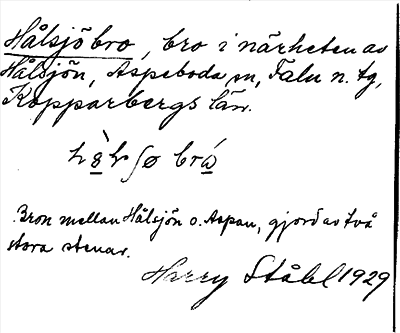 Hålsjöbro, bro i närheten av
Hålsjön, Aspeboda sn, Falu n. tg,
Kopparbergs län.
Bron mellan Hålsjön o. Aspan, gjord av två
stora stenar.
Harry Ståhl 1929